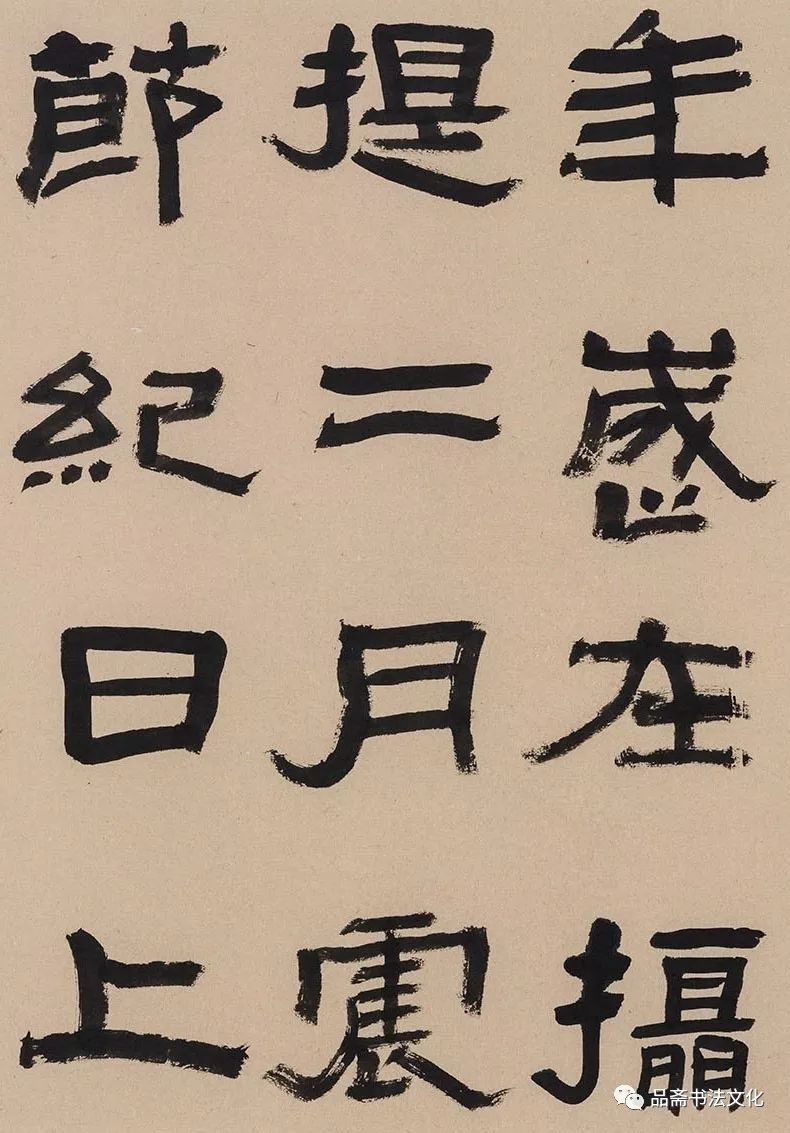 年歲在攝
提二月震
節紀日上
品斋书法文化